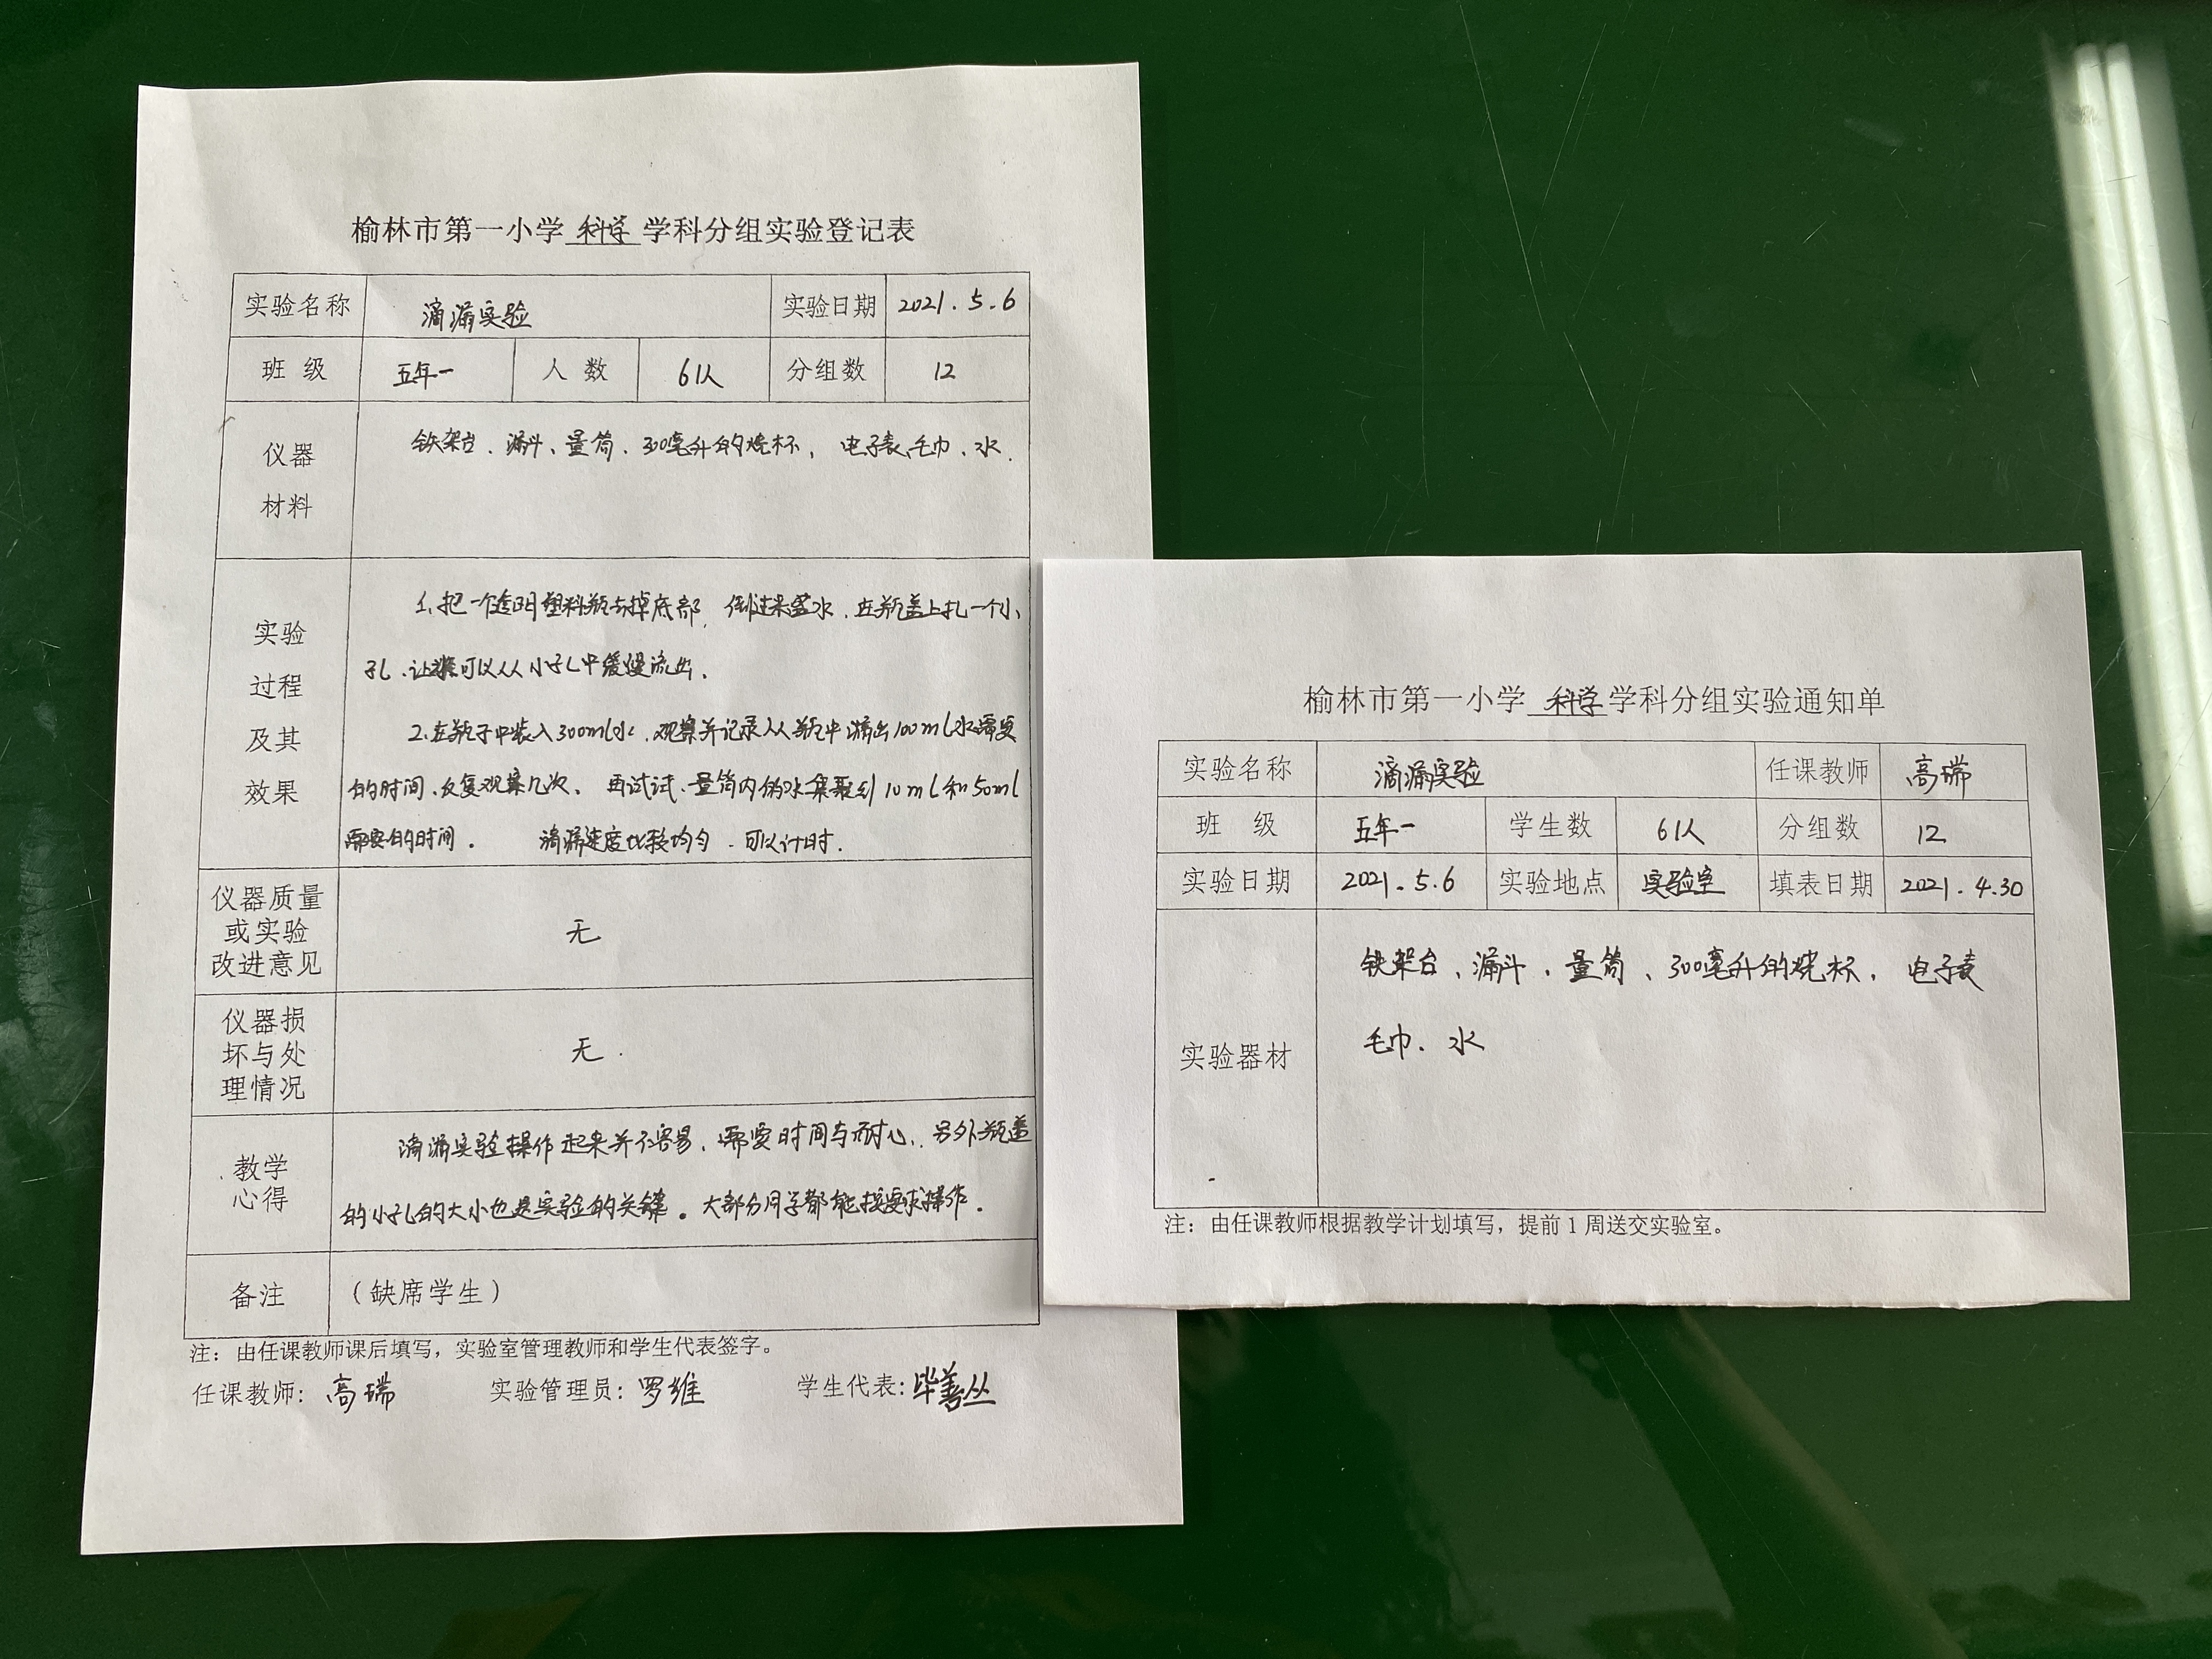 榆林市第一小学 科学 学科分组实验登记表
实验名称 滴漏实验 实验日期 2021.5.6
班 级 五年一 人 数 61人 分组数 12
仪器
材料
铁架台、漏斗、量筒、300毫升的烧杯, 电子表、毛巾、水.
实验
过程
及其
效果
1、把一个透明塑料瓶去掉底部, 倒过来盛水、在瓶盖上扎一个小
孔、让水可以从小孔中缓慢流出、
2、在瓶子中装入300ml水、观察并记录从瓶中滴出100ml水需要
的时间、反复观察几次、 再试试、量筒内的水集聚到10ml和50ml
需要的时间。 滴漏速度比较均匀、可以计时.
仪器质量
或实验
改进意见
无
仪器损
坏与处
理情况
无.
教学
心得
滴漏实验操作起来并不容易、需要时间与耐心、另外瓶盖
的小孔的大小也是实验的关键。大部分同学都能按要求操作.
备注 (缺席学生)
注:由任课教师课后填写,实验室管理教师和学生代表签字。
任课教师: 高瑞 实验管理员: 罗维 学生代表: 毕善丛
榆林市第一小学 科学 学科分组实验通知单
实验名称 滴漏实验 任课教师 高瑞
班 级 五年一 学生数 61人 分组数 12
实验日期 2021.5.6 实验地点 实验室 填表日期 2021.4.30
实验器材
铁架台、漏斗、量筒、300毫升的烧杯, 电子表
毛巾、水
注:由任课教师根据教学计划填写,提前1周送交实验室。